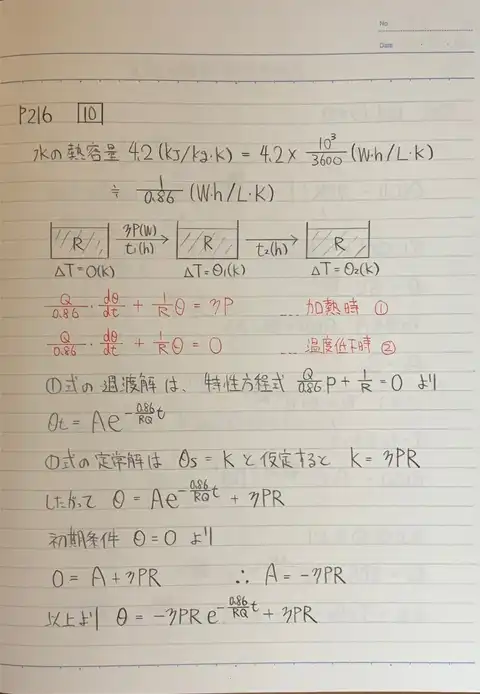 No.
Date
P216 10
水の熱容量 4.2(kJ/kg·K) = 4.2×10³/3600 (W·h/L·K)
≒ 1/0.86 (W·h/L·K)
R ηP(W) t₁(h) R t₂(h) R
ΔT=0(K) ΔT=θ₁(K) ΔT=θ₂(K)
Q/0.86 · dθ/dt + 1/R θ = ηP … 加熱時 ①
Q/0.86 · dθ/dt + 1/R θ = 0 … 温度低下時 ②
①式の過渡解は、特性方程式 Q/0.86 P + 1/R = 0 より
θt = Ae^(-0.86/RQ t)
①式の定常解は θs = K と仮定すると K = ηPR
したがって θ = Ae^(-0.86/RQ t) + ηPR
初期条件 θ=0 より
0 = A + ηPR ∴ A = -ηPR
以上より θ = -ηPR e^(-0.86/RQ t) + ηPR